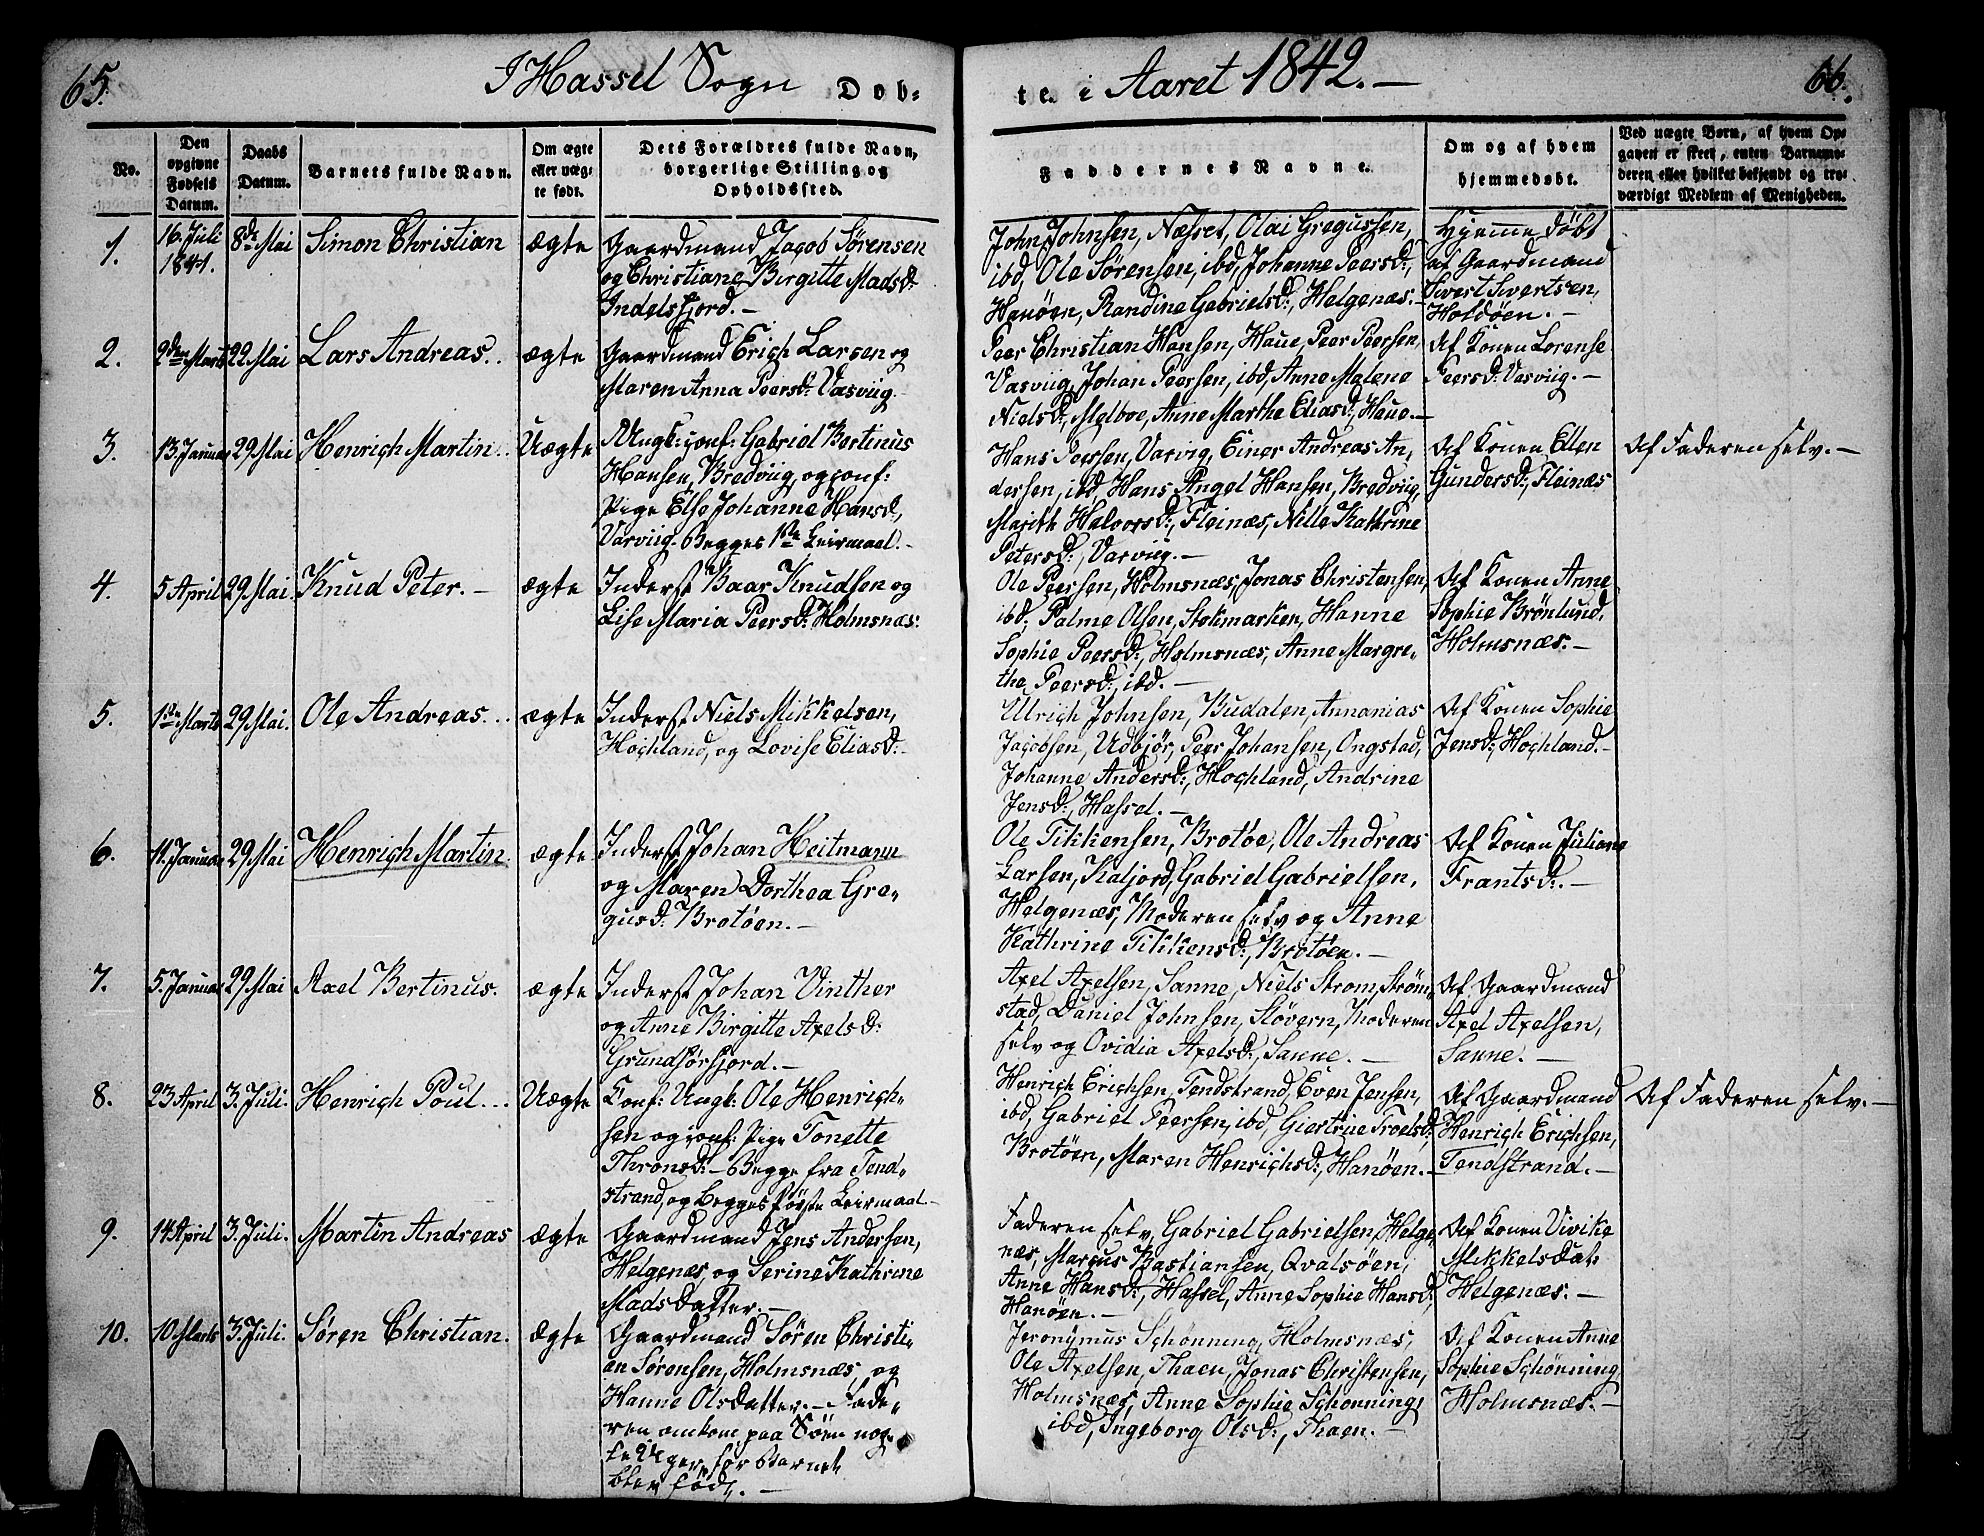 65.
I Hassel Sogn Døb-
te. i Aaret 1842. —
66.
No.
Den opgivne Fødsels Datum.
Daabs Datum.
Barnets fulde Navn.
Om ægte eller uægte født.
Dets Forældres fulde Navn, borgerlige Stilling og Opholdssted.
Faddernes Navne.
Om og af hvem hjemmedøbt.
Ved uægte Børn, af hvem Opgaven er skeet, enten Barnemoderen eller hvilket bekjendt og troværdigt Medlem af Menigheden.
1.
16. Juli
1841.
8de Mai
Simon Christian
ægte
Gaardmand Jacob Sørensen
og Christiane Birgitte Madsd:
Indelsfjord. —
John Johnsen, Næsset, Olai Gregussen,
ibd, Ole Sørensen, ibd, Johanne Peersd:,
Hanøen, Randine Gabrielsd:, Helgenæs. —
Hjemmedøbt
af Gaardmand
Sivert Sivertsen,
Holdøen. —
2.
2den Marts
22 Mai
Lars Andreas.
ægte
Gaardmand Erich Larsen og
Maren Anna Peersd: Vasviig.
Peer Christian Hansen, Haue, Peer Peersen,
Vasviig, Johan Peersen, ibd, Anne Malene
Nielsd:, Melboe, Anne Marthe Eliasd:, Haue. —
Af Konen Lorense
Peersd: Vasviig. —
3.
13. Januar
29 Mai
Henrich Martin.
Uægte
Ungk: conf: Gabriel Bertinus
Hansen, Bredviig, og conf:
Pige Else Johanne Hansd:,
Varviig. Begges 1ste Leirmaal. —
Hans Peersen, Varvig, Einer Andreas An-
dersen, ibd, Hans Angel Hansen, Bredviig,
Marith Halvorsd:, Fleinæs, Nille Kathrine
Petersd:, Varviig. —
Af Konen Ellen
Gundersd:, Fleinæs
Af Faderen selv. —
4.
5 April
29 Mai.
Knud Peter. —
ægte
Inderst Baar Knudsen og
Lise Maria Peersd: Holmsnæs:
Ole Peersen, Holmsnæs, Jonas Christensen,
ibd, Palme Olsen, Stokmarken, Hanne
Sophie Peersd:, Holmsnæs, Anne Margre-
tha Peersd:, ibd. —
Af Konen Anne
Sophie Brönlund,
Holmsnæs. —
5.
1ste Marts
29 Mai.
Ole Andreas.
ægte
Inderst Niels Mikkelsen,
Hochland, og Lovise Eliasd:
Ulrich Johnsen, Budalen, Annanias
Jacobsen, Udbjör, Peer Johansen, Ongstad,
Johanne Andersd:, Hochland, Andrine
Jensd:, Hassel. —
Af Konen Sophie
Jensd:, Hochland. —
6.
11. Januar
29 Mai
Henrich Martin.
ægte
Inderst Johan Heitmann
og Maren Dorthea Gre-
gusd: Brotöen. —
Ole Tikkensen, Brotöe, Ole Andreas
Larsen, Kaljord, Gabriel Gabrielsen,
Helgenæs, Moderen selv og Anne
Kathrine Tikkensd:, Brotöen. —
Af Konen Juliane
Frantsd:. —
7.
5. Januar
29 Mai
Axel Bertinus.
ægte
Inderst Johan Vinther
og Anne Birgitte Axelsd:
Grundförfjord. —
Axel Axelsen, Sanne, Niels Strøm, Ström-
stad, Daniel Johnsen, Slövern, Moderen
selv og Ovidia Axelsd:, Sanne. —
Af Gaardmand
Axel Axelsen,
Sanne. —
8.
23 April
3. Juli.
Henrich Poul.
Uægte
Conf: Ungk: Ole Henrich-
sen og conf: Pige Tonette
Thronsd: — Begge fra Tend-
strand, og Begges første Leirmaal. —
Henrich Erichsen, Tendstrand, Even Jensen,
ibd, Gabriel Peersen, ibd, Giertrue Troelsd:
Brotöen, Maren Henrichsd:, Hanöen. —
Af Gaardmand
Henrich Erichsen,
Tendstrand. —
Af Faderen selv. —
9.
14 April
3. Juli.
Martin Andreas
ægte
Gaardmand Jens Andersen,
Helgenæs, og Serine Kathrine
Madsdatter. —
Faderen selv, Gabriel Gabrielsen, Helge-
næs, Marcus Bastiansen, Qvalsöen,
Anne Hansd:, Hassel, Anne Sophie Hansd:,
Hanöen. —
Af Konen Vivike
Mikkelsdat:
Helgenæs. —
10.
10 Marts
3. Juli.
Søren Christian.
ægte
Gaardmand Søren Christi-
an Sørensen, Holmsnæs, og
Hanne Olsdatter. — Fade-
ren omkom paa Söen nog-
le Uger, før Barnet
blev född. —
Jeronymus Schönning, Holmsnæs,
Ole Axelsen, Thaen, Jonas Christensen,
Holmsnæs, Anne Sophie Schönning,
ibd, Ingeborg Olsd:, Thaen. —
Af Konen Anne
Sophie Schönning
Holmsnæs. —